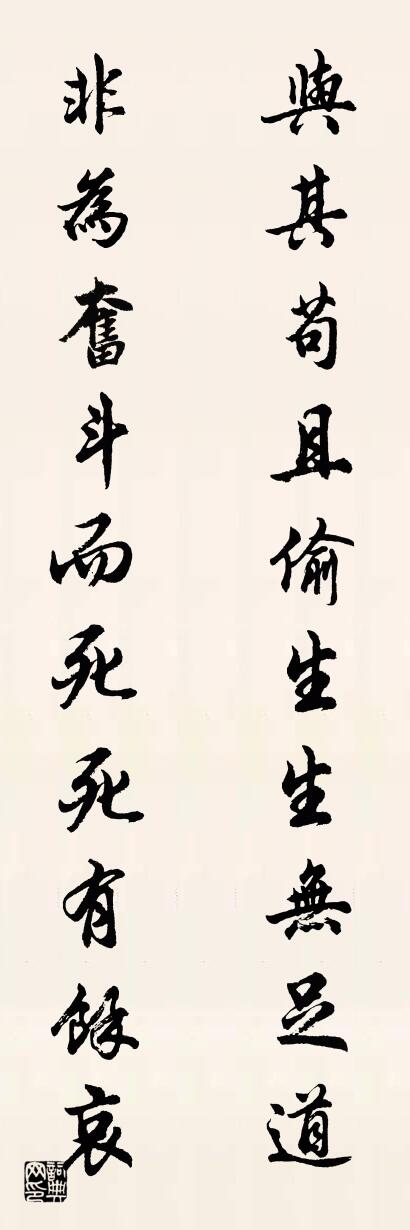 與其苟且偷生生無足道
非為奮斗而死死有餘哀
詞典網印